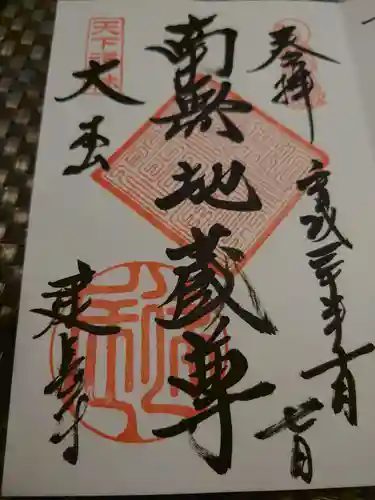 奉拝
平成三十年十月
七日
南無地蔵尊
天下禅林
大本山
建長寺